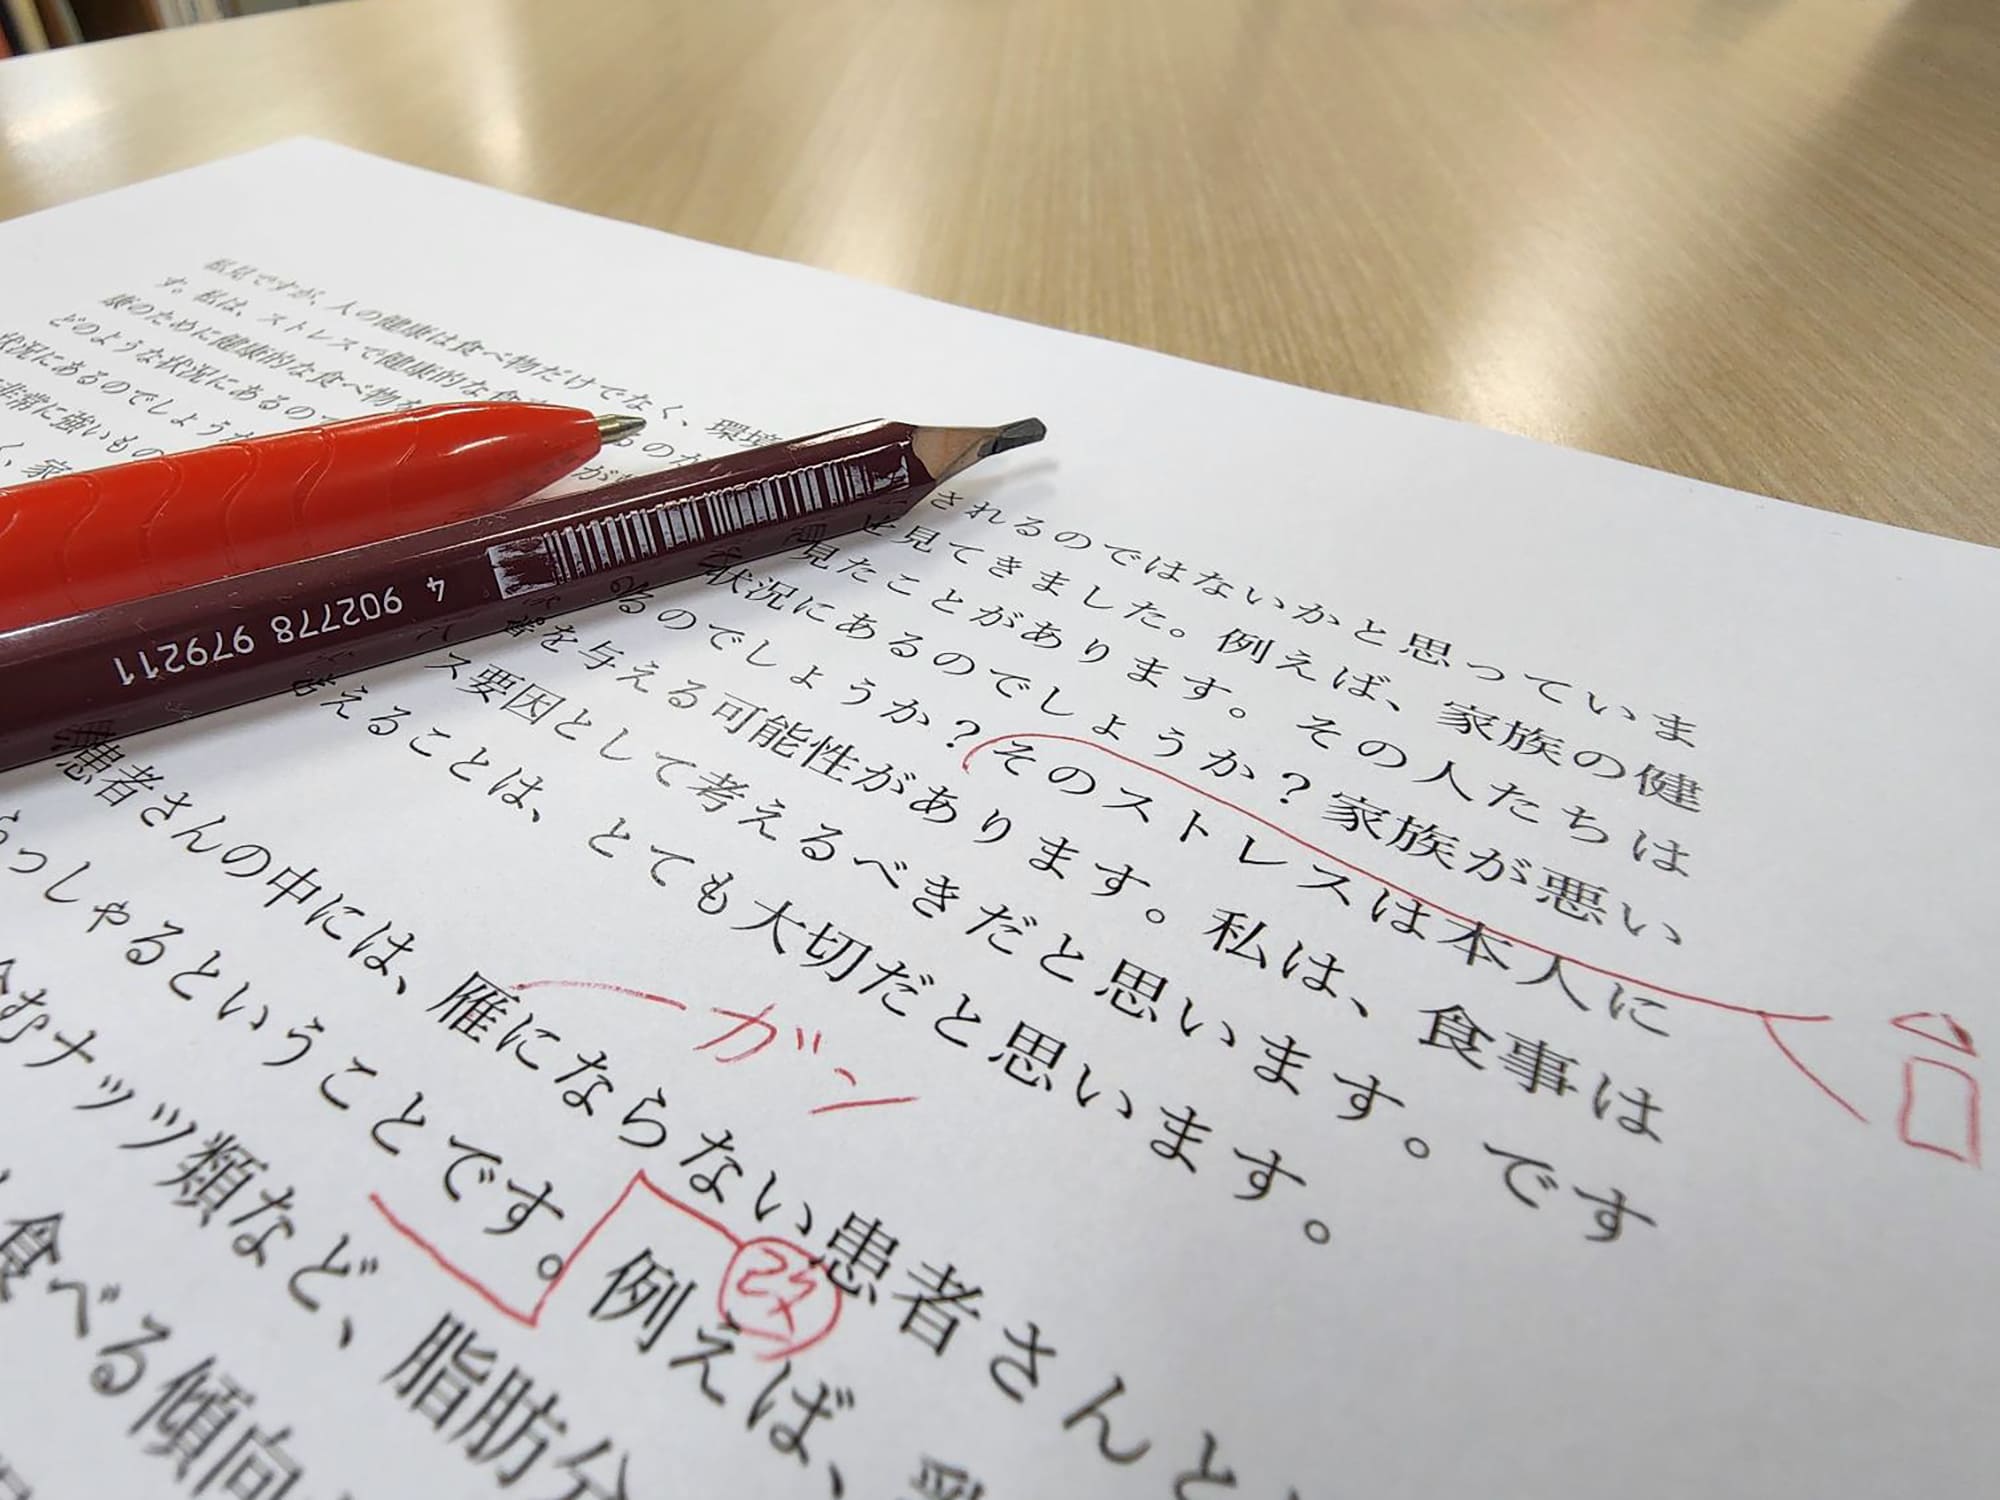 私見ですが、人の健康は食べ物だけでなく、環境 されるのではないかと思っていま
す。私は、ストレスで健康的な食 を見てきました。例えば、家族の健
康のために健康的な食べ物を 見たことがあります。その人たちは
どのような状況にあるので 状況にあるのでしょうか？家族が悪い
状況にあるのでしょうか るのでしょうか？そのストレスは本人に
非常に強いもの 響を与える可能性があります。私は、食事は
く、家 ス要因として考えるべきだと思います。です
考えることは、とても大切だと思います。
4 902778 979211
患者さんの中には、雁にならない患者さんと
ガン
らっしゃるということです。例えば、乳
改
むナッツ類など、脂肪分
食べる傾向